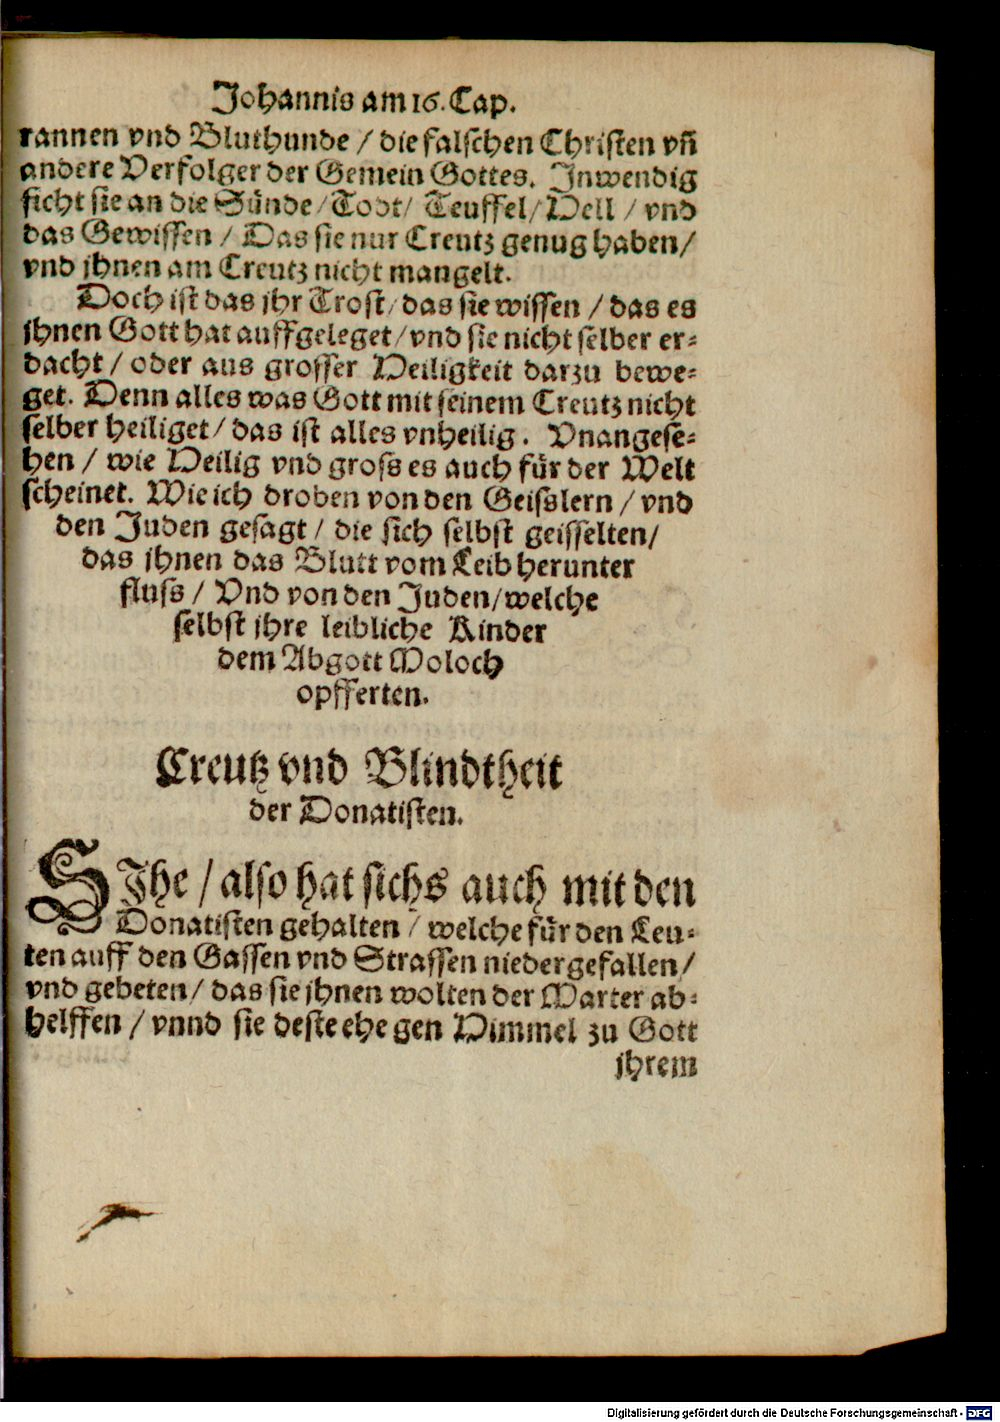 Johannis am 16. Cap.
rannen vnd Bluthunde / die falschen Christen vñ
andere Verfolger der Gemein Gottes. Inwendig
ficht sie an die Sünde / Todt / Teuffel / Hell / vnd
das Gewissen / Das sie nur Creutz genug haben /
vnd jhnen am Creutz nicht mangelt.
Doch ist das jhr Trost / das sie wissen / das es
jhnen Gott hat auffgeleget / vnd sie nicht selber er-
dacht / oder aus grosser Heiligkeit darzu bewe-
get. Denn alles was Gott mit seinem Creutz nicht
selber heiliget / das ist alles vnheilig. Vnangese-
hen / wie Heilig vnd gross es auch für der Welt
scheinet. Wie ich droben von den Geißlern / vnd
den Juden gesagt / die sich selbst geisselten /
das jhnen das Blutt vom Leib herunter
fluss / Vnd von den Juden / welche
selbst jhre leibliche Kinder
dem Abgott Moloch
opfferten.
Creutz vnd Blindtheit
der Donatisten.
SIhe / also hat sichs auch mit den
Donatisten gehalten / welche für den Leu-
ten auff den Gassen vnd Strassen niedergefallen /
vnd gebeten / das sie jhnen wolten der Marter ab-
helffen / vnnd sie deste ehe gen Himmel zu Gott
jhrem
Digitalisierung gefördert durch die Deutsche Forschungsgemeinschaft - DFG